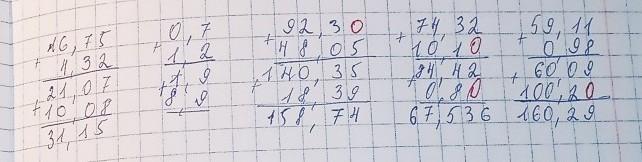 16,75
+ 4,32
21,07
+ 10,08
31,15
+ 0,7
1,2
+ 1,9
8,9
+ 92,30
48,05
+ 140,35
18,39
158,74
+ 74,32
10,10
+ 84,42
0,80
67,536
+ 59,11
0,98
+ 60,09
100,20
160,29